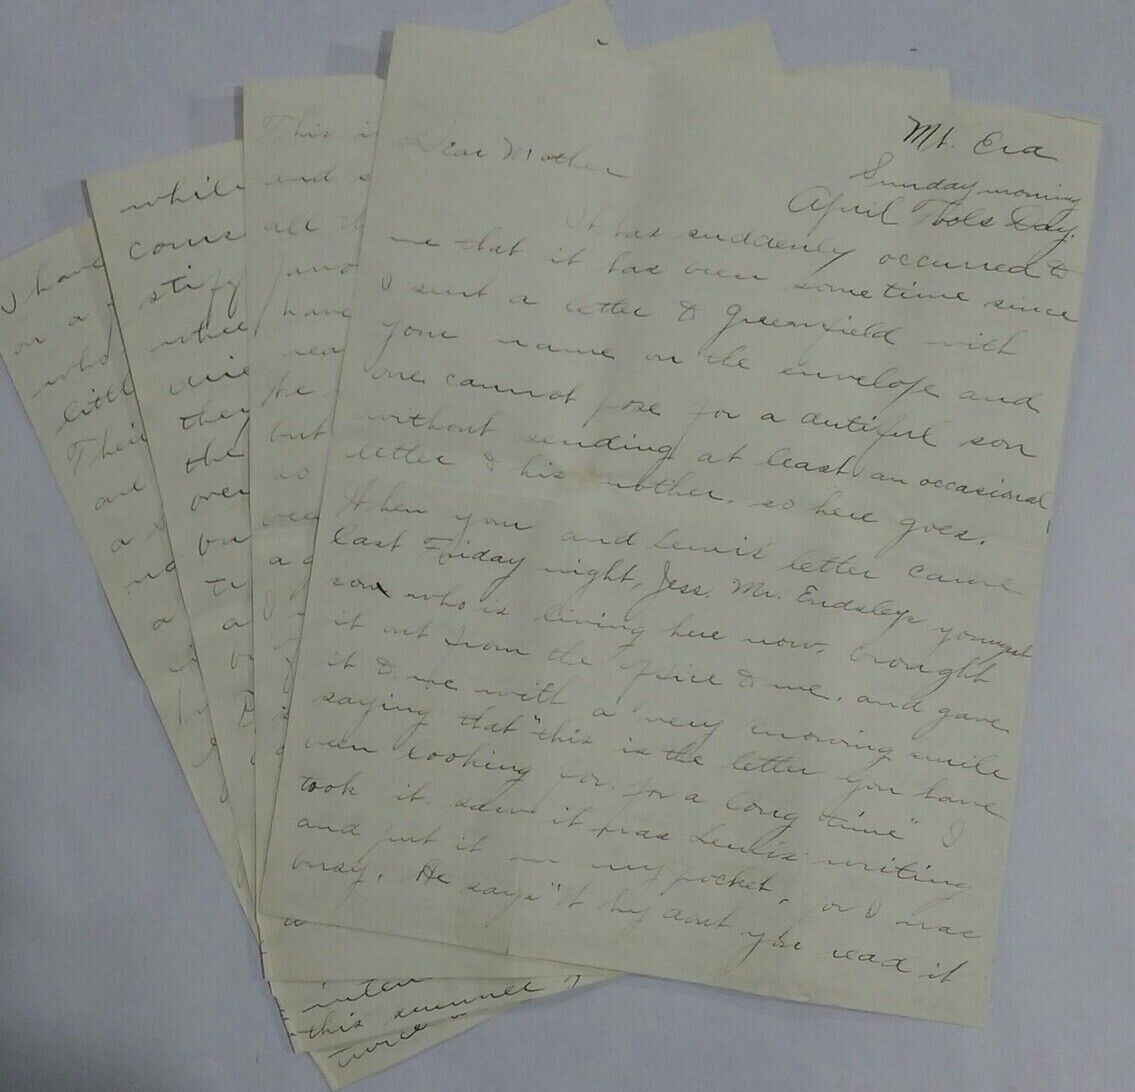 Mt. Era
Sunday morning
April Fools Day.
Dear Mother
It has suddenly occurred to
me that it has been sometime since
I sent a letter to Greenfield with
your name on the envelope and
one cannot pose for a dutiful son
without sending at least an occasional
letter to his mother, so here goes.
When you and Lewis' letter came
last Friday night, Jess. Mr. Endsleys youngest
son who is living here now, brought
it out from the office to me, and gave
it to me with a very knowing smile
saying that "this is the letter you have
been looking for, for a long time" I
took it, saw it was Lewis' writing
and put it in my pocket, for I was
busy. He says "Why dont you read it
This i
and s
all th
have
nea
the
but
so
whil
come
stiff
whee
ther
the
over
bu
I have
on a
who
littl
Their
are
a
no
a
inten
this summer
twice